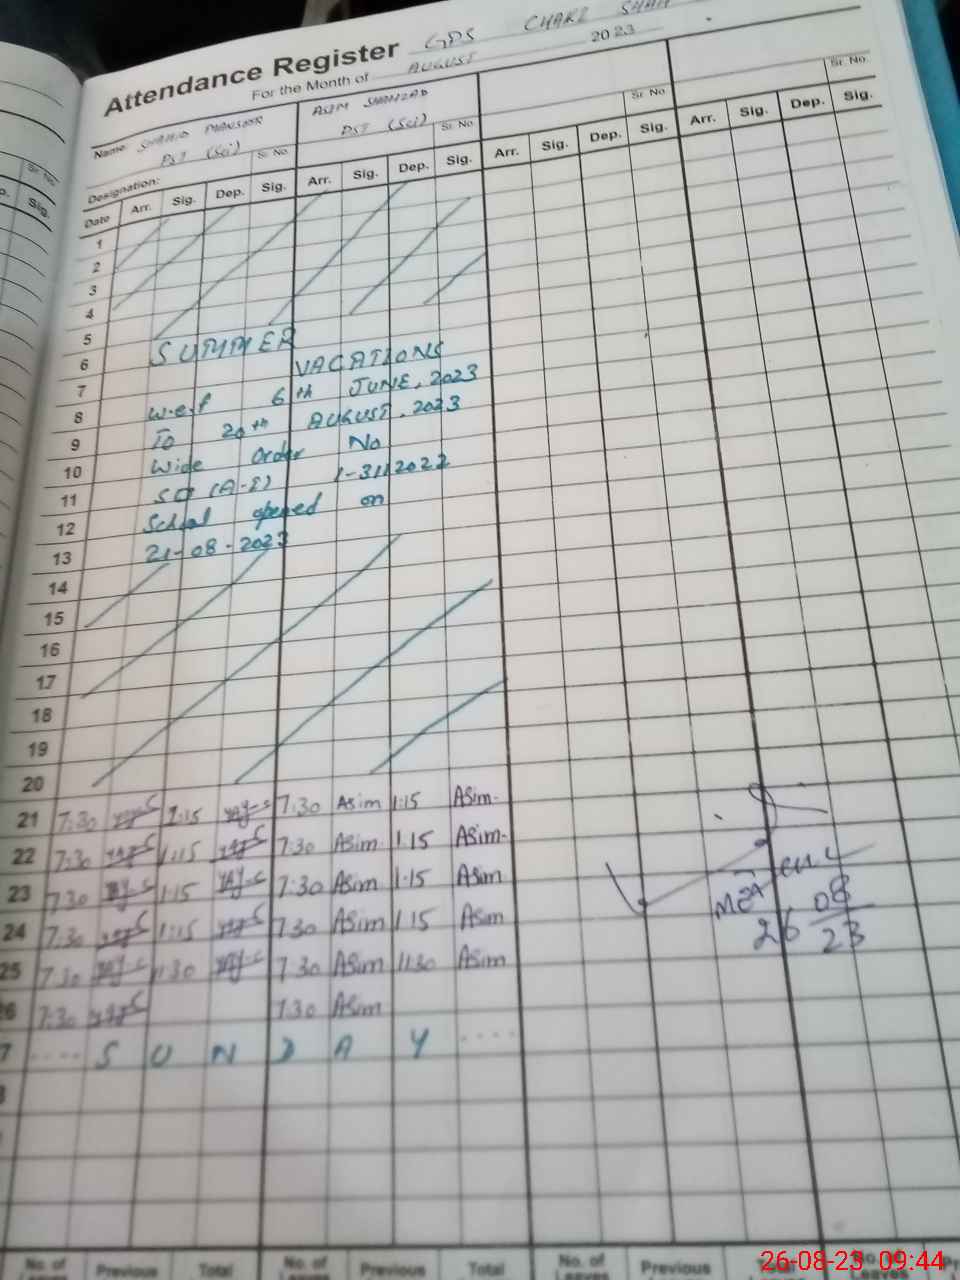 Attendance Register GPS CHAK2 SHAH
For the Month of AUGUST 2023
Name: SHAHID MANSOOR ASIM SHAHZAD
PST (Sci) PST (Sci)
Designation: Sr. No. Sr. No. Sr. No. Sr. No.
Date Arr. Sig. Dep. Sig. Arr. Sig. Dep. Sig. Arr. Sig. Dep. Sig. Arr. Sig. Dep. Sig.
1
2
3
4
5
6 SUMMER
7 VACATIONS
8 w.e.f 6th JUNE, 2023
9 To 20th AUGUST, 2023
10 Wide Order No
11 SO (A-I) 1-31/2022
12 School opened on
13 21-08-2023
14
15
16
17
18
19
20
21 7:30 1:15 7:30 Asim 1:15 Asim
22 7:30 1:15 7:30 Asim 1:15 Asim
23 7:30 1:15 7:30 Asim 1:15 Asim
24 7:30 1:15 7:30 Asim 1:15 Asim
25 7:30 11:30 7:30 Asim 11:30 Asim
26 7:30 7:30 Asim
7 .... SUNDAY ....
MEA
26 08
23
No. of Previous Total No. of Previous Total No. of Previous Total No. of
Leaves Leaves Leaves Leaves
26-08-23 09:44